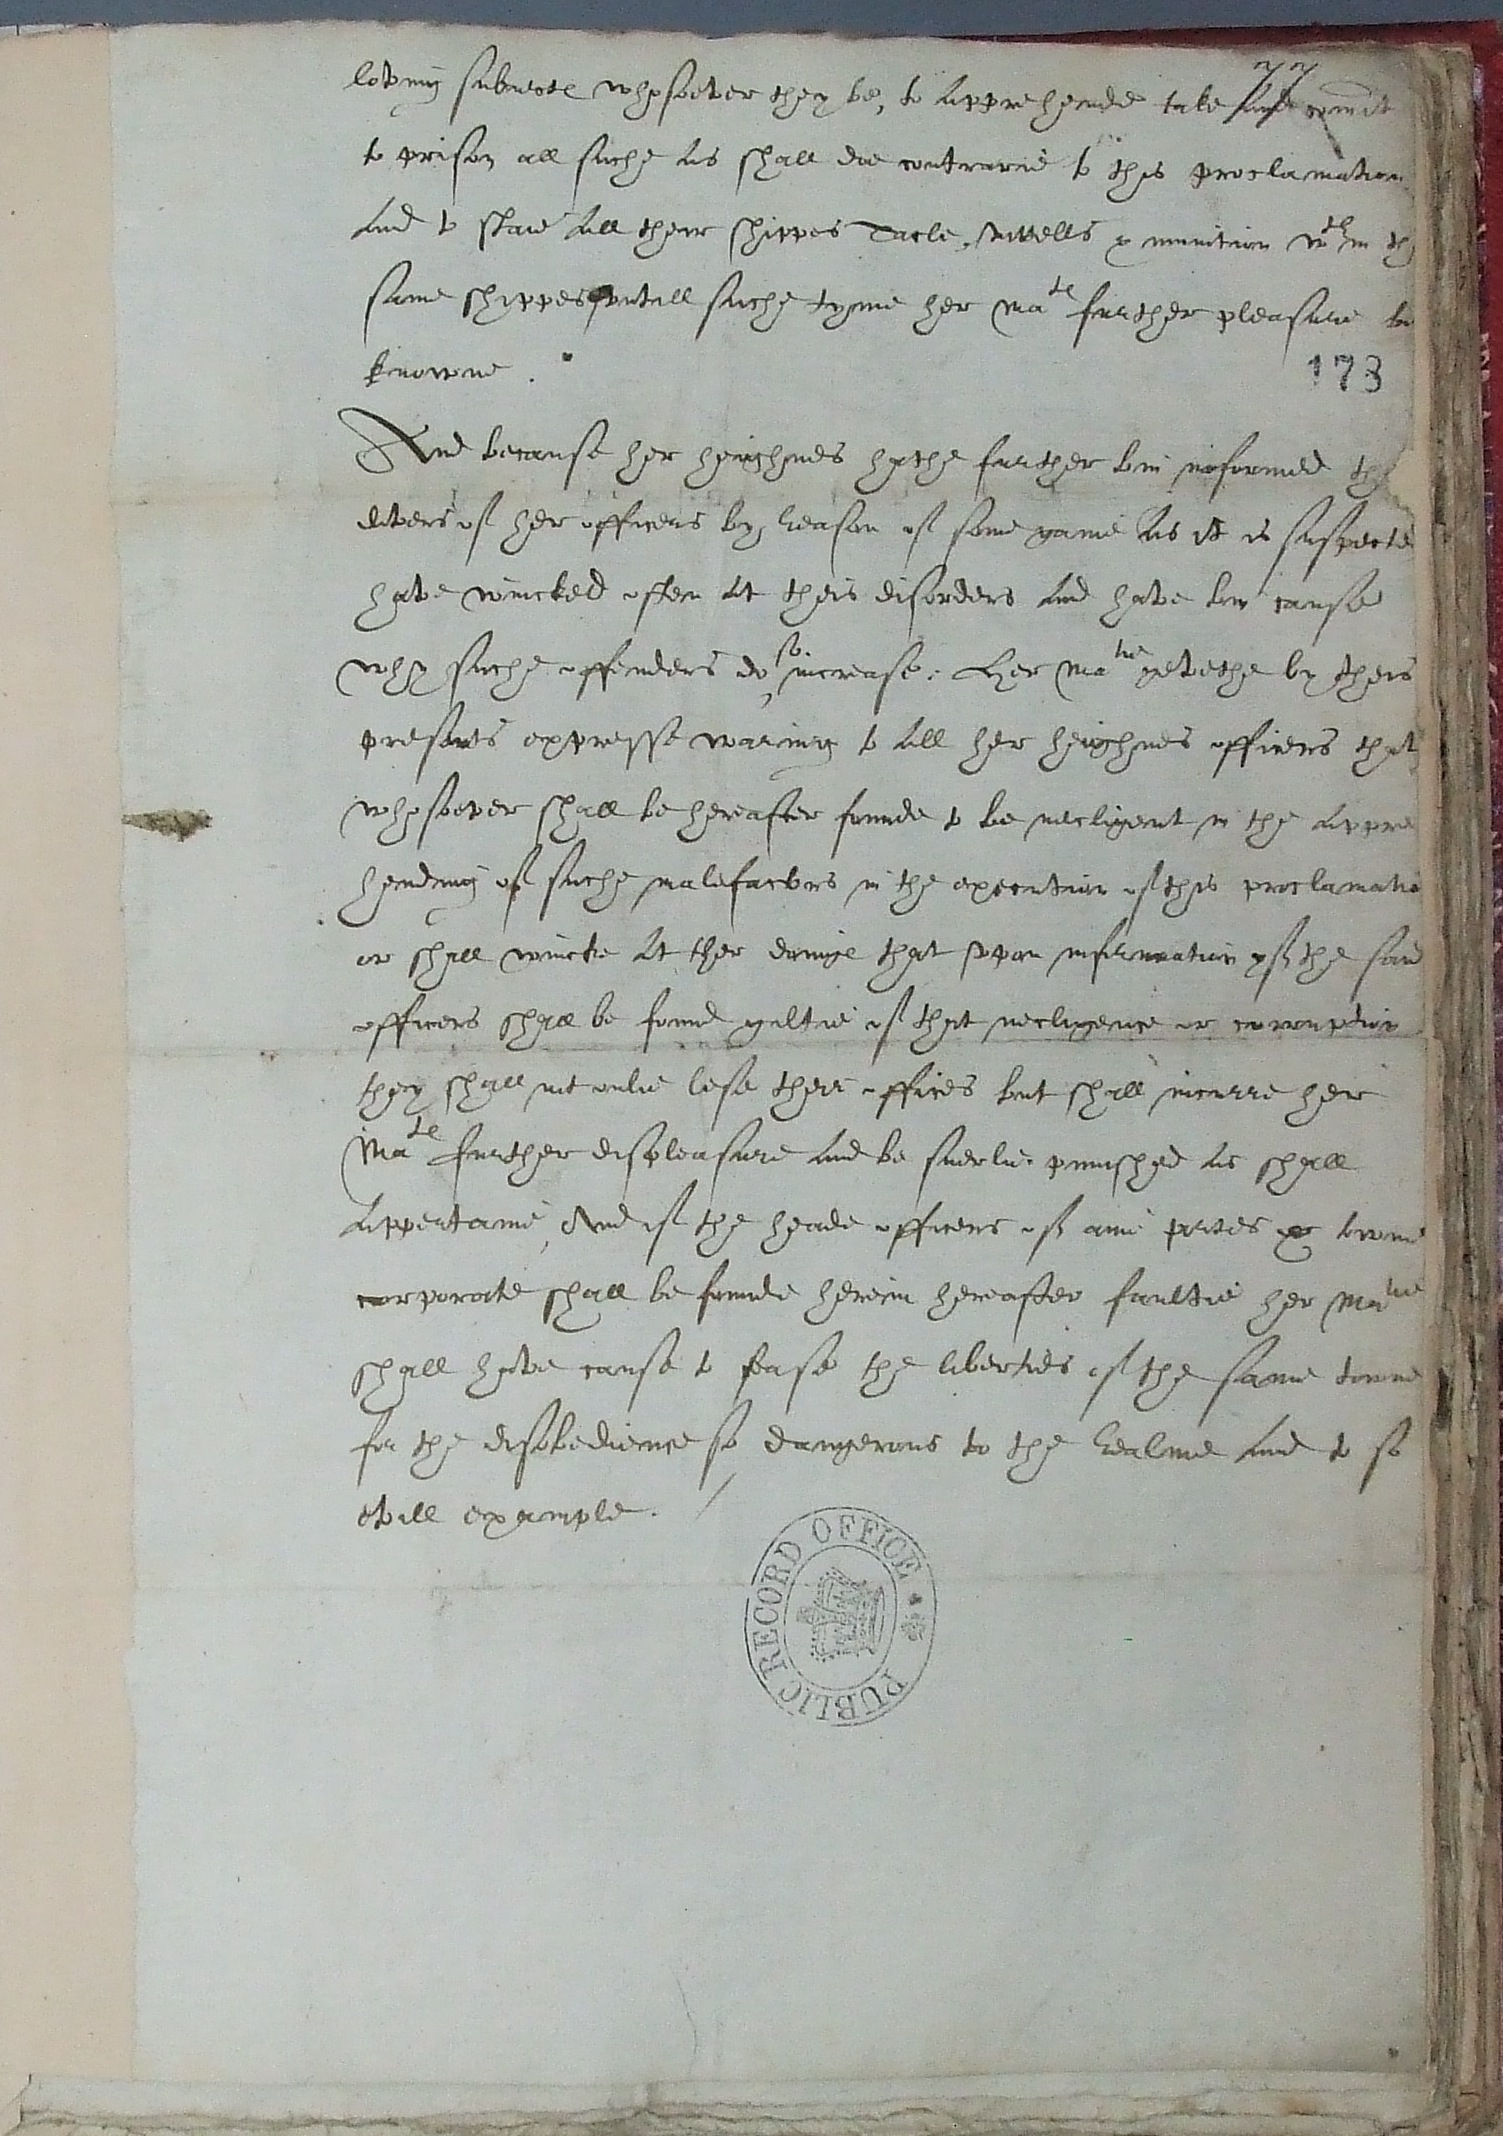 77
loving subiectes whosoever they be, to apprehende take and comit
to prison all suche as shall doe contrarie to this proclamation
And to staie all their shippes Tacle, vittells & munition wth in the
same shippes untill suche tyme her Mates further pleasure be
knowne.
173
And because her heighnes hathe further bin informed tha
divers of her officers by reason of some gaine as it is suspecte
have wincked often at theis disorders and have bin cause
why suche offenders do so increase: Her Matie gevethe by theis
presents expresse warning to all her heighnes officers that
whosoever shall be hereafter founde to be necligent in the appre
hending of suche malefactors in the execution of this proclamatio
or shall wincke at ther doinges that upon information yf the said
officers shall be found giltie of that necligence or corruption
they shall not onlie lose their offices but shall incurre her
Mates further displeasure and be suerlie punished as shall
appertaine, And if the heade officers of anie portes or towne
corporate shall be founde herein hereafter faultie her Matie
shall have cause to sease the liberties of the same towne
for the disobedience so dangerous to the Realme and to so
evill example.
PUBLIC RECORD OFFICE